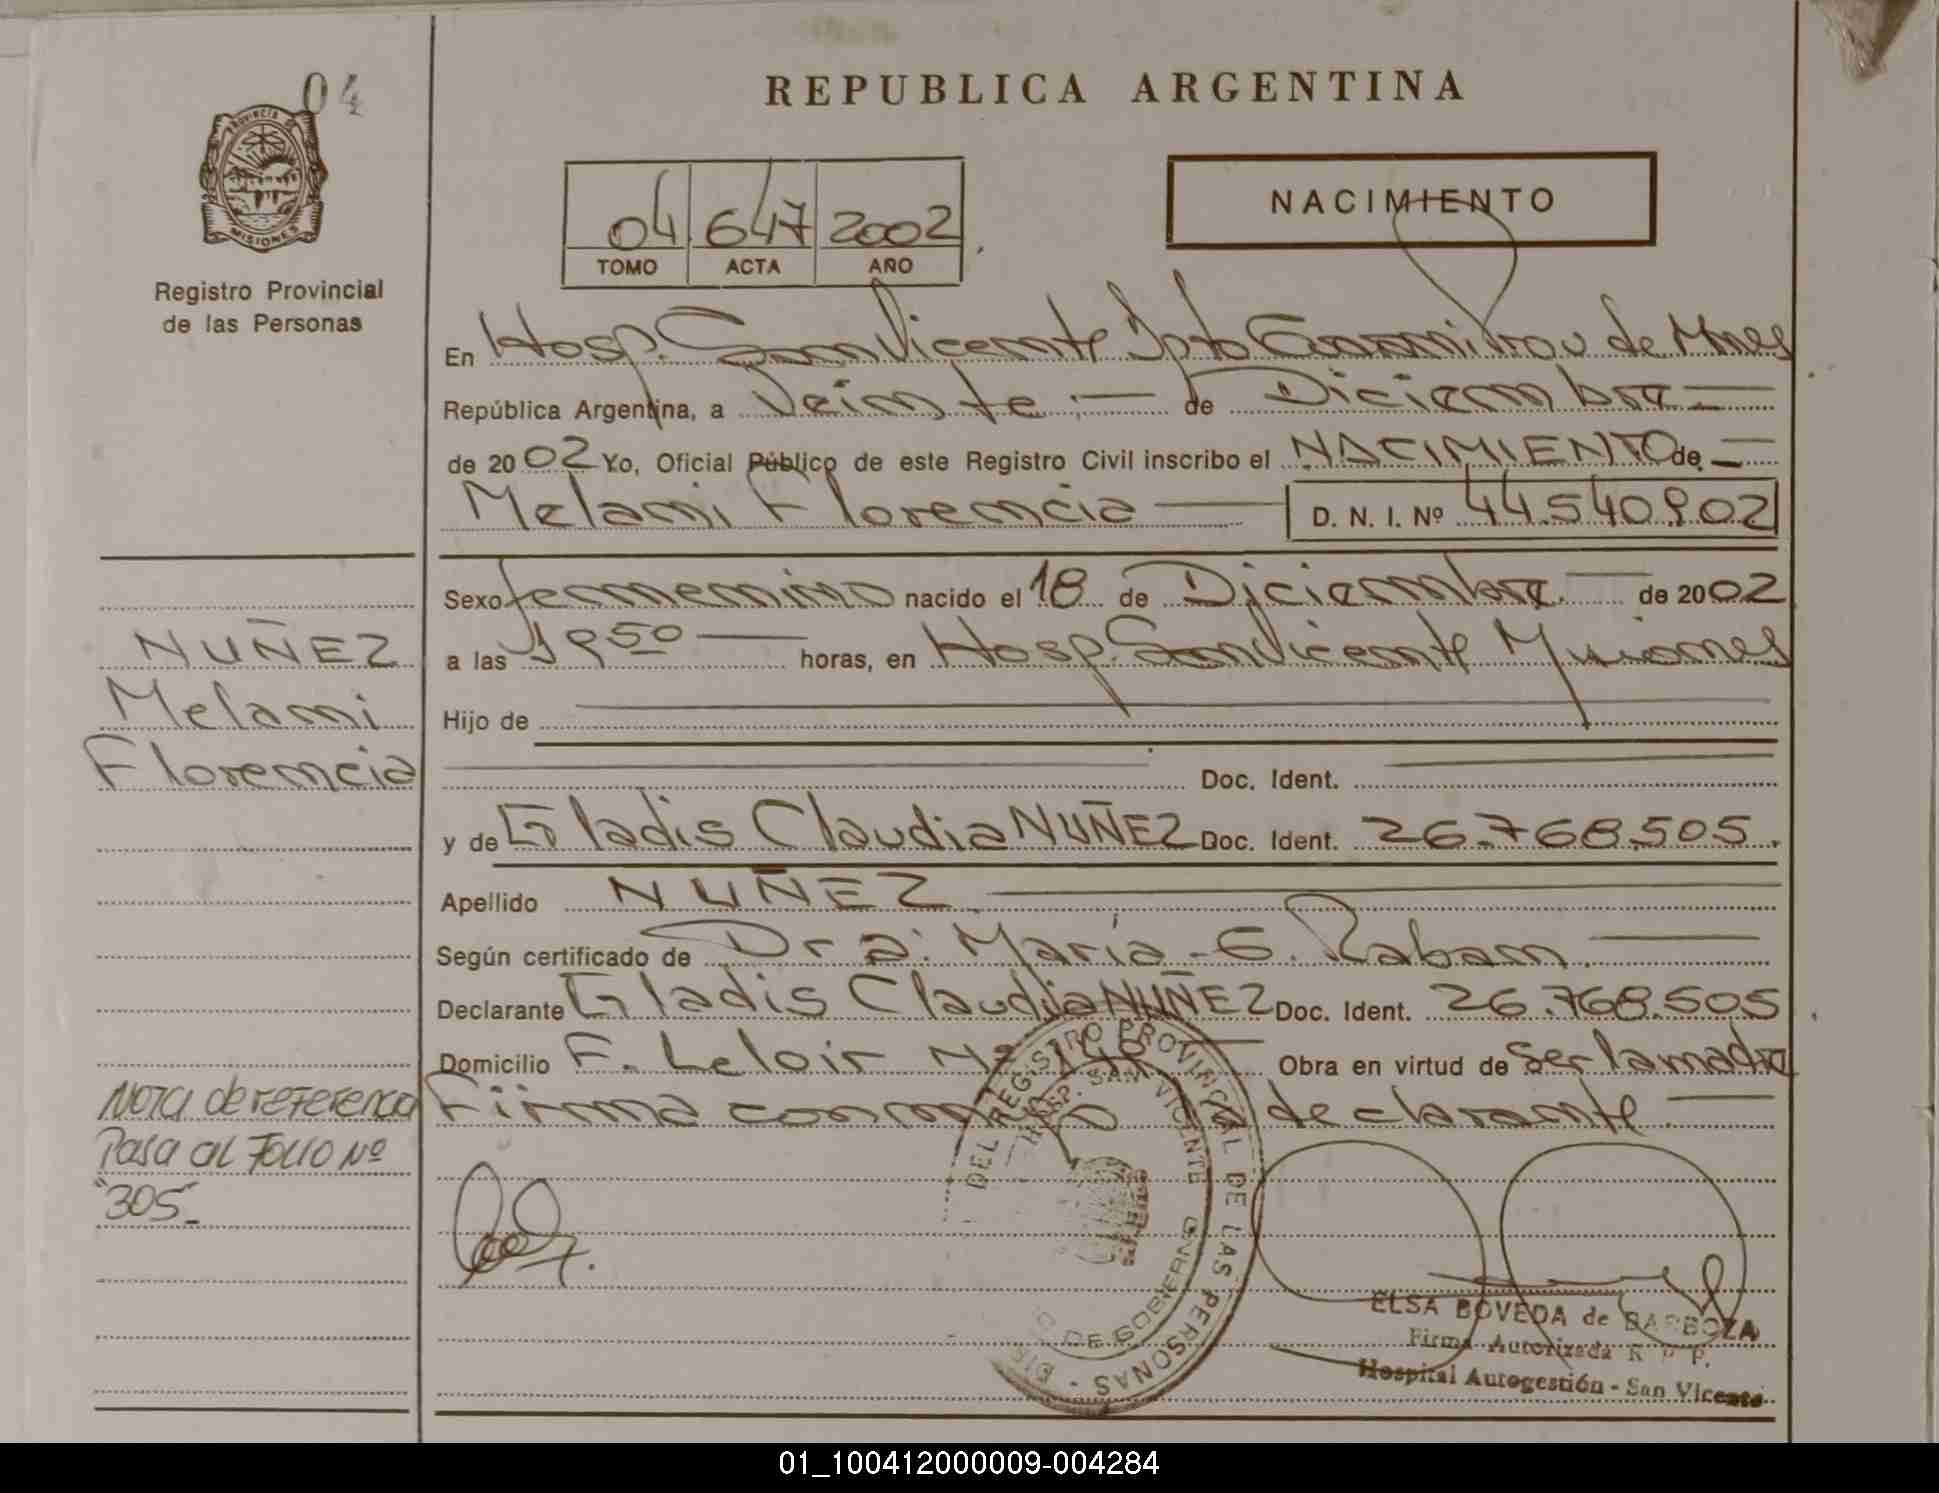 04
REPUBLICA ARGENTINA
PROVINCIA DE
MISIONES
Registro Provincial
de las Personas
04 647 2002
TOMO ACTA AÑO
NACIMIENTO
En Hosp. San Vicente Dpto Guarani Prov de Mnes
República Argentina, a Veinte.— de Diciembre—
de 2002 Yo, Oficial Público de este Registro Civil inscribo el NACIMIENTO de —
Melani Florencia — D. N. I. Nº 44.540.902
Sexo femenino nacido el 18 de Diciembre. — de 2002
a las 19 50 — horas, en Hosp. San Vicente Misiones
Hijo de
Doc. Ident.
y de Gladis Claudia NUÑEZ Doc. Ident. 26.768.505.
Apellido NUÑEZ —
Según certificado de Dra. María E. Raban. —
Declarante Gladis Claudia NUÑEZ Doc. Ident. 26.768.505
Domicilio F. Leloir Nº Obra en virtud de Ser la madre
Firma la declarante —
NUÑEZ
Melani
Florencia
Nota de referencia
Pasa al Folio Nº
"305"
DEL REGISTRO PROVINCIAL DE LAS PERSONAS
HOSP. SAN VICENTE
DE GOBIERNO
ELSA BOVEDA de BARBOZA
Firma Autorizada R. P. P.
Hospital Autogestión - San Vicente
01_100412000009-004284